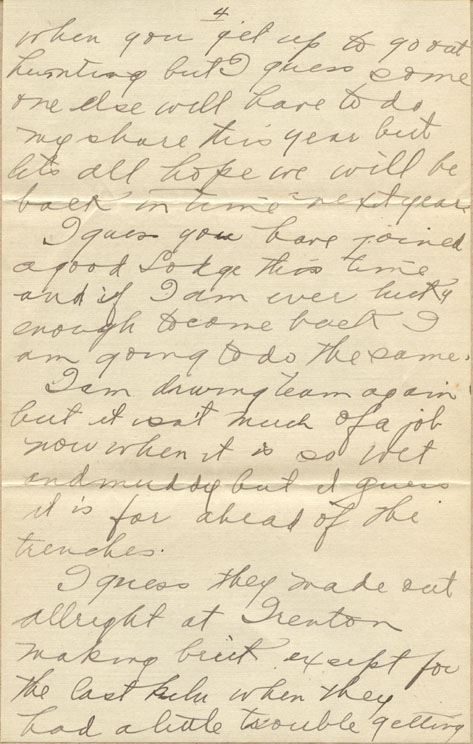 4
when you get up to go out
hunting but I guess some
one else will have to do
my share this year but
lets all hope we will be
back in time next year
I guess you have joined
a good Lodge this time
and if I am ever lucky
enough to come back I
am going to do the same.
I am driving team again
but it isn't much of a job
now when it is so wet
and muddy but I guess
it is far ahead of the
trenches.
I guess they made out
allright at Trenton
making brick except for
the last kiln when they
had a little trouble getting